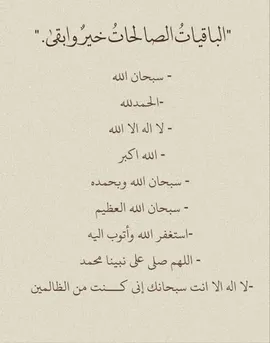 "الباقياتُ الصالحاتُ خيرٌ وابقىٰ."
- سبحان الله
-الحمدلله
- لا اله الا الله
- الله اكبر
- سبحان الله وبحمده
- سبحان الله العظيم
-استغفر الله وأتوب اليه
- اللهم صلى على نبينا محمد
-لا اله الا انت سبحانك إنى كنت من الظالمين